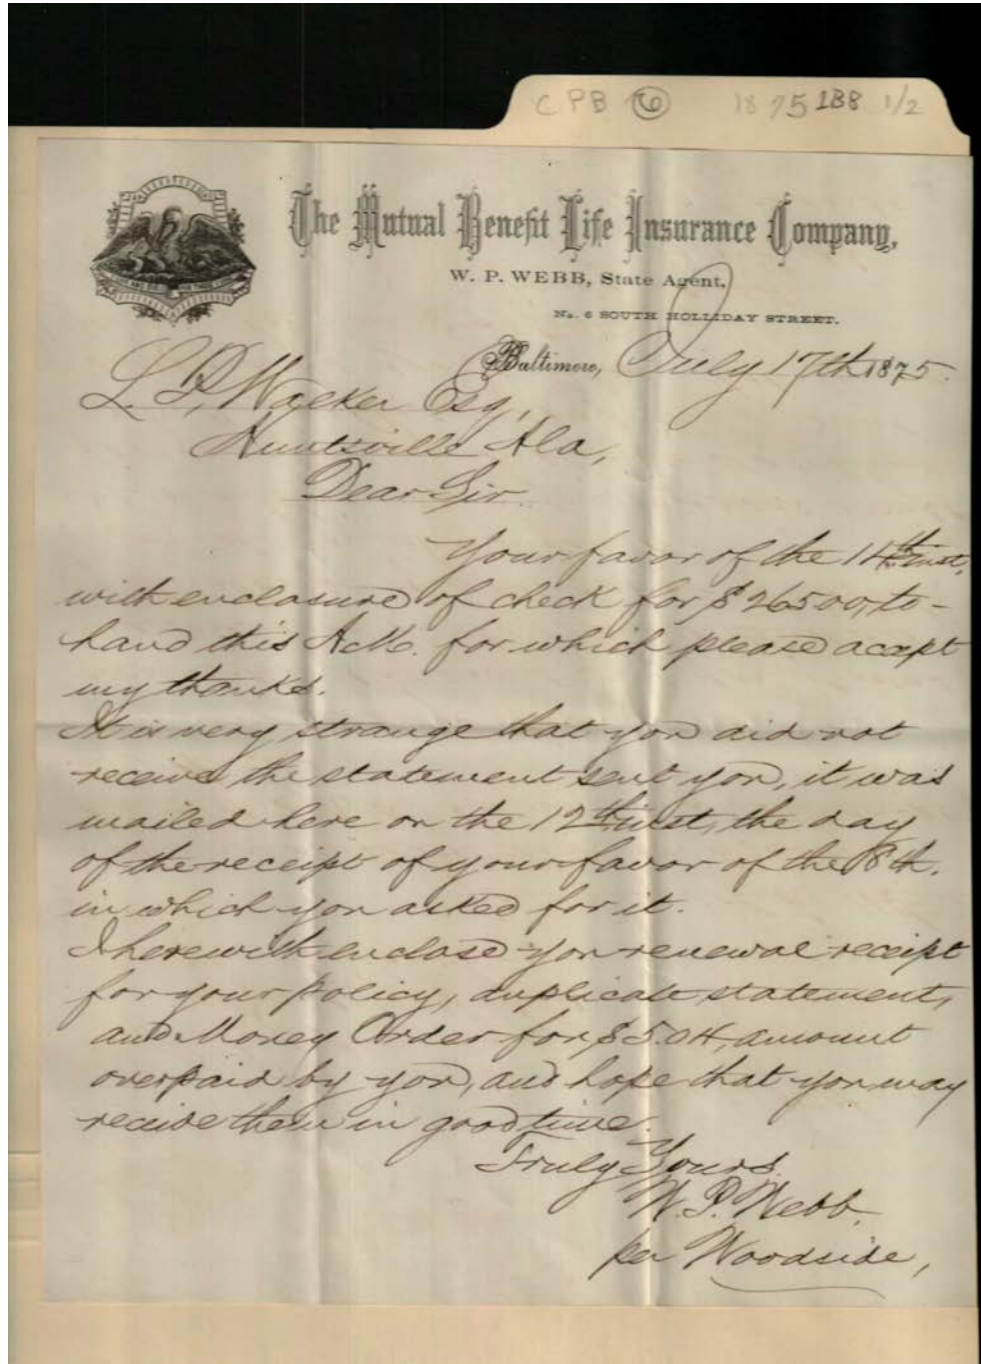 CPB 6 1875 188 1/2
The Mutual Benefit Life Insurance Company,
W. P. WEBB, State Agent,
No. 6 SOUTH HOLLIDAY STREET.
Baltimore, July 17th 1875.
L. P. Walker Esq,
Huntsville Ala,
Dear Sir.
Your favor of the 14th inst,
with enclosure of check for $265 00, to-
hand this A.M. for which please accept
my thanks.
It is very strange that you did not
receive the statement sent you, it was
mailed here on the 12th inst, the day
of the receipt of your favor of the 8th.
in which you asked for it.
I herewith enclose you renewal receipt
for your policy, duplicate statement,
and Money Order for $5.04, amount
overpaid by you, and hope that you may
receive them in good time.
Truly Yours.
W. P. Webb.
per Woodside,